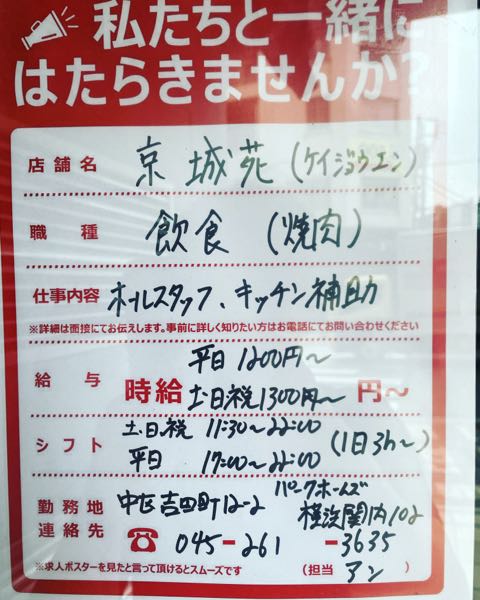 私たちと一緒に
はたらきませんか?
店舗名 京城苑(ケイジョウエン)
職種 飲食(焼肉)
仕事内容 ホールスタッフ、キッチン補助
※詳細は面接にてお伝えします。事前に詳しく知りたい方はお電話にてお問い合わせください
平日1200円～
給与 時給 土日祝1300円～ 円～
土日祝 11:30～22:00
シフト (1日3h～)
平日 17:00～22:00
勤務地 中区吉田町12-2 パークホームズ
横浜関内102
連絡先 ☎ 045-261-3635
※求人ポスターを見たと言って頂けるとスムーズです (担当 アン )